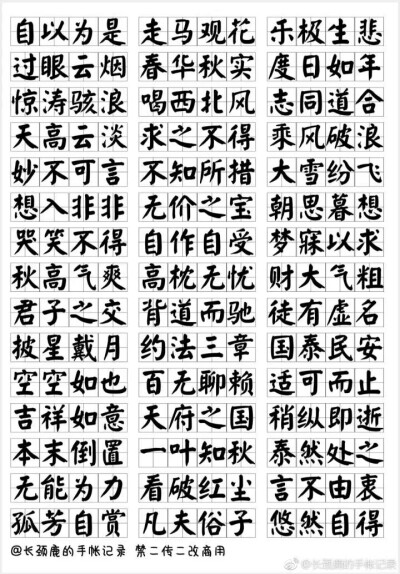 自以为是 走马观花 乐极生悲
过眼云烟 春华秋实 度日如年
惊涛骇浪 喝西北风 志同道合
天高云淡 求之不得 乘风破浪
妙不可言 不知所措 大雪纷飞
想入非非 无价之宝 朝思暮想
哭笑不得 自作自受 梦寐以求
秋高气爽 高枕无忧 财大气粗
君子之交 背道而驰 徒有虚名
披星戴月 约法三章 国泰民安
空空如也 百无聊赖 适可而止
吉祥如意 天府之国 稍纵即逝
本末倒置 一叶知秋 泰然处之
无能为力 看破红尘 言不由衷
孤芳自赏 凡夫俗子 悠然自得
@长颈鹿的手帐记录 禁二传二改商用
@长颈鹿的手帐记录